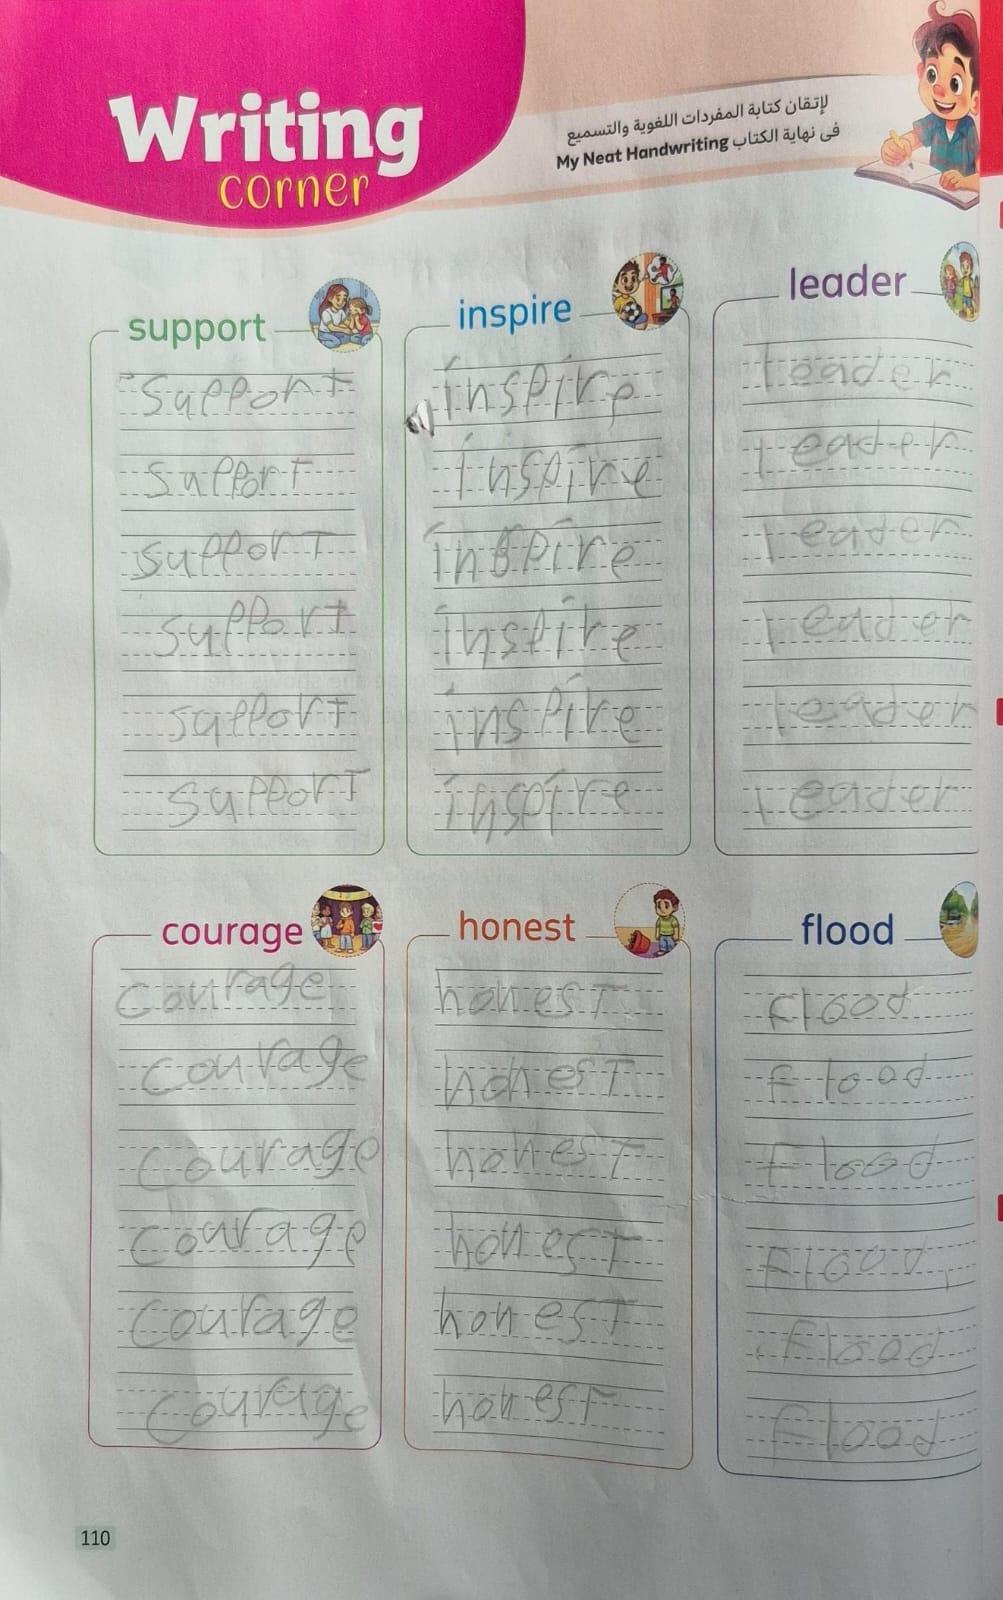 Writing
corner
لإتقان كتابة المفردات اللغوية والتسميع
فى نهاية الكتاب My Neat Handwriting
support
support
support
support
support
support
support
inspire
inspire
inspire
inspire
inspire
inspire
inspire
leader
leader
leader
leader
leader
leader
leader
courage
courage
courage
courage
courage
courage
courage
honest
honest
honest
honest
honest
honest
honest
flood
flood
flood
flood
flood
flood
flood
110